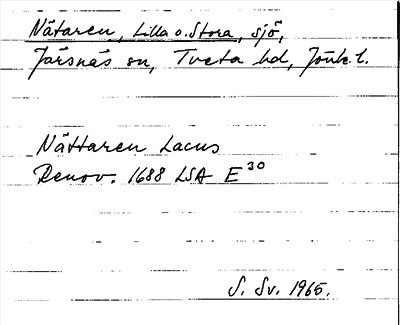 Nätaren, Lilla o. Stora, sjö,
Järsnäs sn, Tveta hd, Jönk. l.
Nättaren Lacus
Renov. 1688 LSA E 30
S. Sv. 1965.